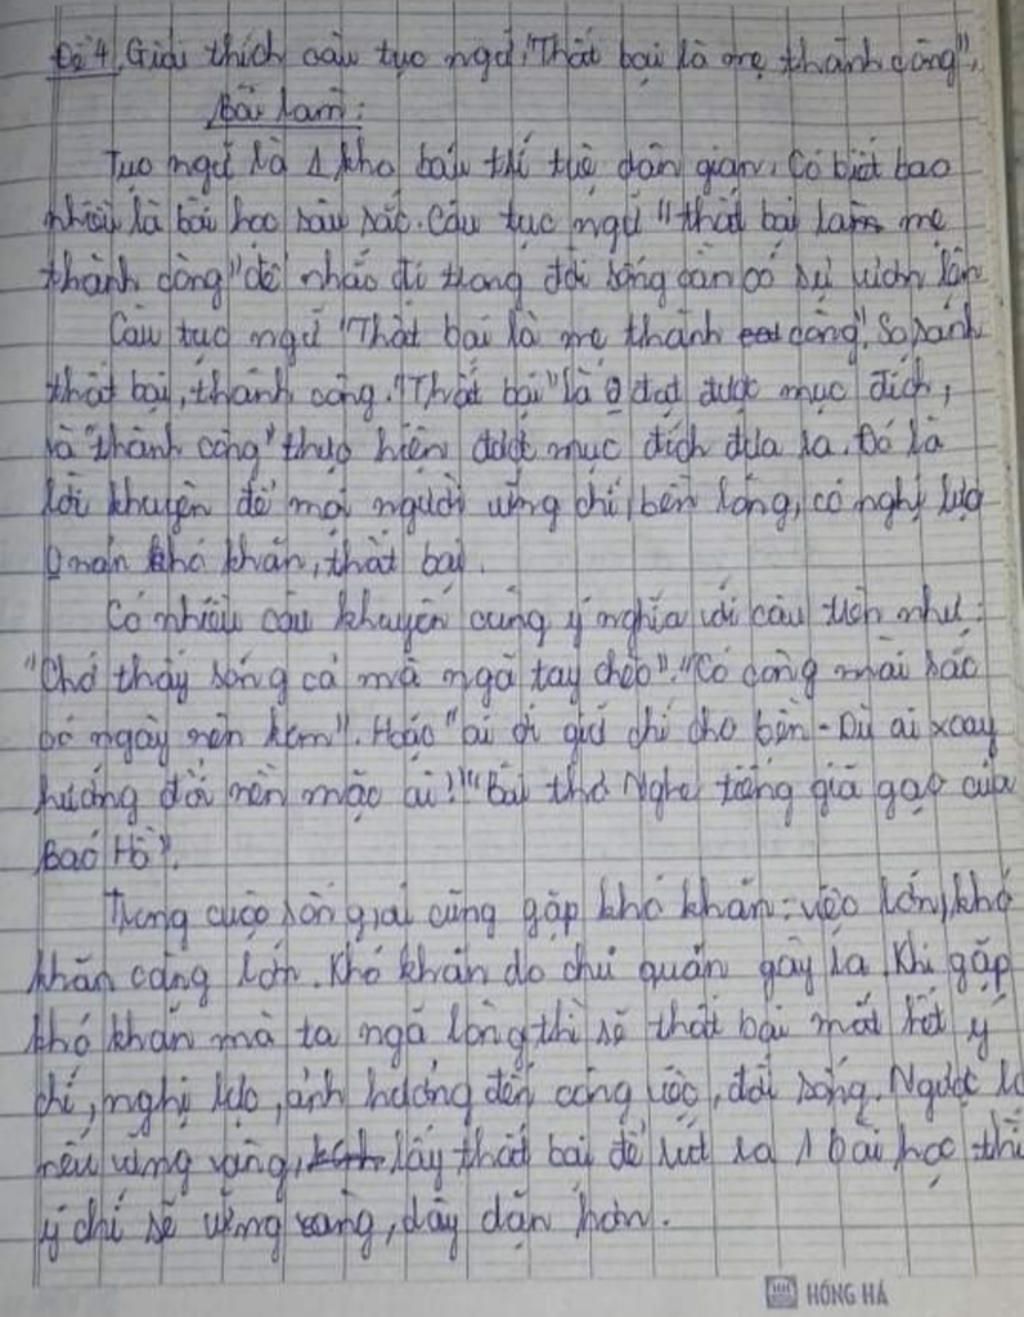 Đề 4, Giải thích câu tục ngữ "Thất bại là mẹ thành công",
Bài làm:
Tục ngữ là 1 kho báu trí tuệ dân gian, có biết bao
nhiêu là bài học sâu sắc. Câu tục ngữ "thất bại là mẹ
thành công" để nhắc đi trong đời sống cần có sự
Câu tục ngữ "Thất bại là mẹ thành công". So sánh
thất bại, thành công. "Thất bại" là 0 đạt được mục đích,
là "thành công" thực hiện được mục đích đưa ra. Đó là
lời khuyên để mọi người vững chí, bền lòng, có nghị lực
0 nản khó khăn, thất bại.
Có nhiều câu khuyên cùng ý nghĩa với câu trên như:
"Chớ thấy sóng cả mà ngã tay chèo". "Có công mài sắc
có ngày nên kim". Hoặc "ai ơi giữ chí cho bền - Dù ai xoay
hướng đổi nền mặc ai!" "Bài thơ Nghe tiếng giã gạo của
Bác Hồ".
Trong cuộc sống ai cũng gặp khó khăn: việc lớn, khó
khăn càng lớn. Khó khăn do chủ quan gây ra. Khi gặp
khó khăn mà ta ngã lòng thì sẽ thất bại mất hết ý
chí, nghị lực, ảnh hưởng đến công việc, đời sống. Ngược lại
nếu vững vàng, lấy thất bại để rút ra 1 bài học thì
ý chí sẽ vững vàng, dày dặn hơn.
HỒNG HÀ